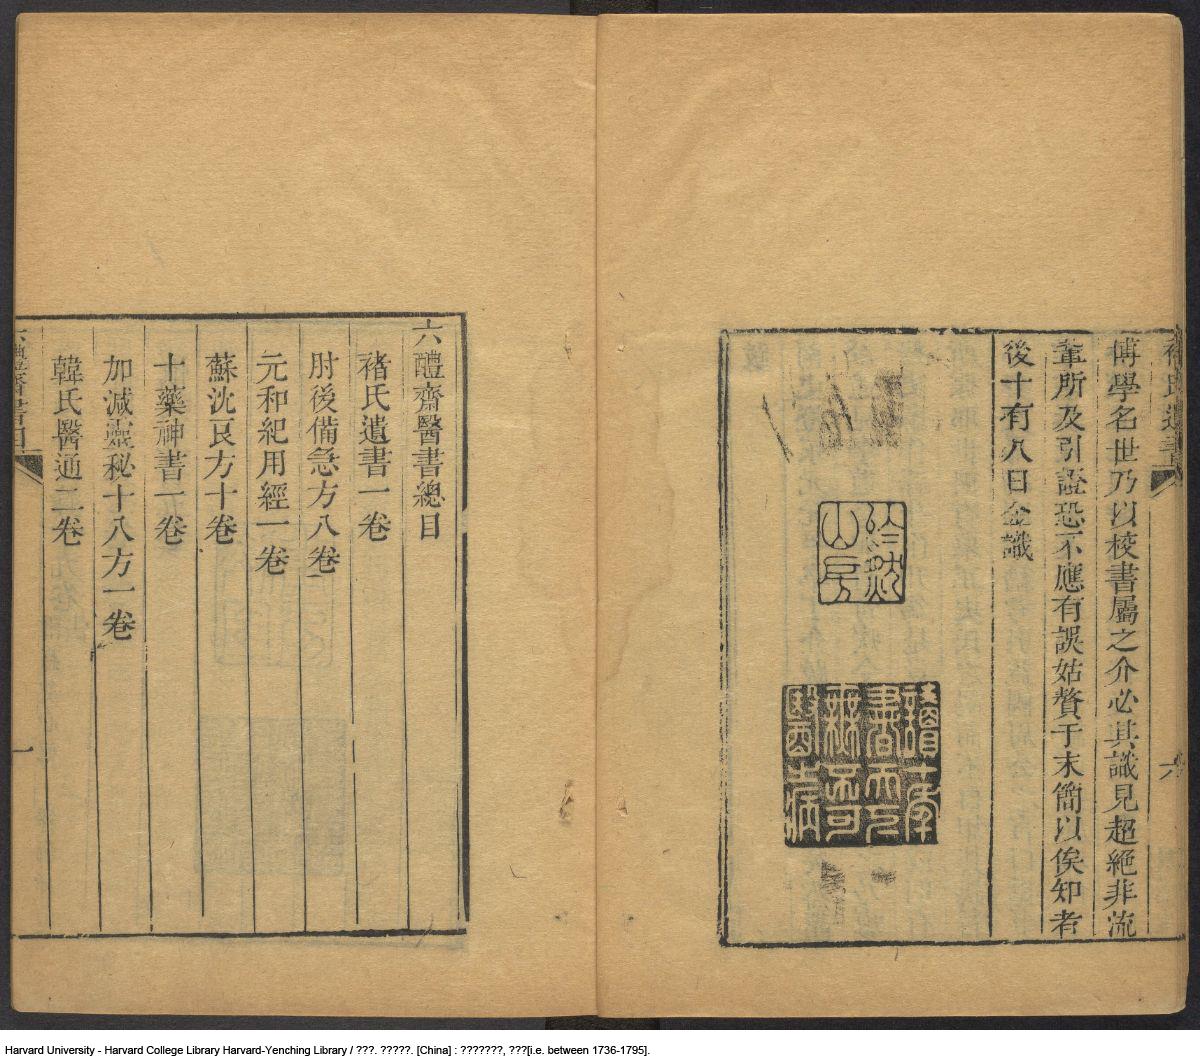 褚氏遺書
博學名世乃以校書屬之介必其識見超絕非流
輩所及引證恐不應有誤姑贅于末簡以俟知者
後十有八日金識
六
山房
讀十年
書天下
無不可
醫之病
六醴齋醫書總目
褚氏遺書一卷
肘後備急方八卷
元和紀用經一卷
蘇沈良方十卷
十藥神書一卷
加減靈秘十八方一卷
韓氏醫通二卷
一
Harvard University - Harvard College Library Harvard-Yenching Library / ???. ?????. [China] : ???????, ???[i.e. between 1736-1795].